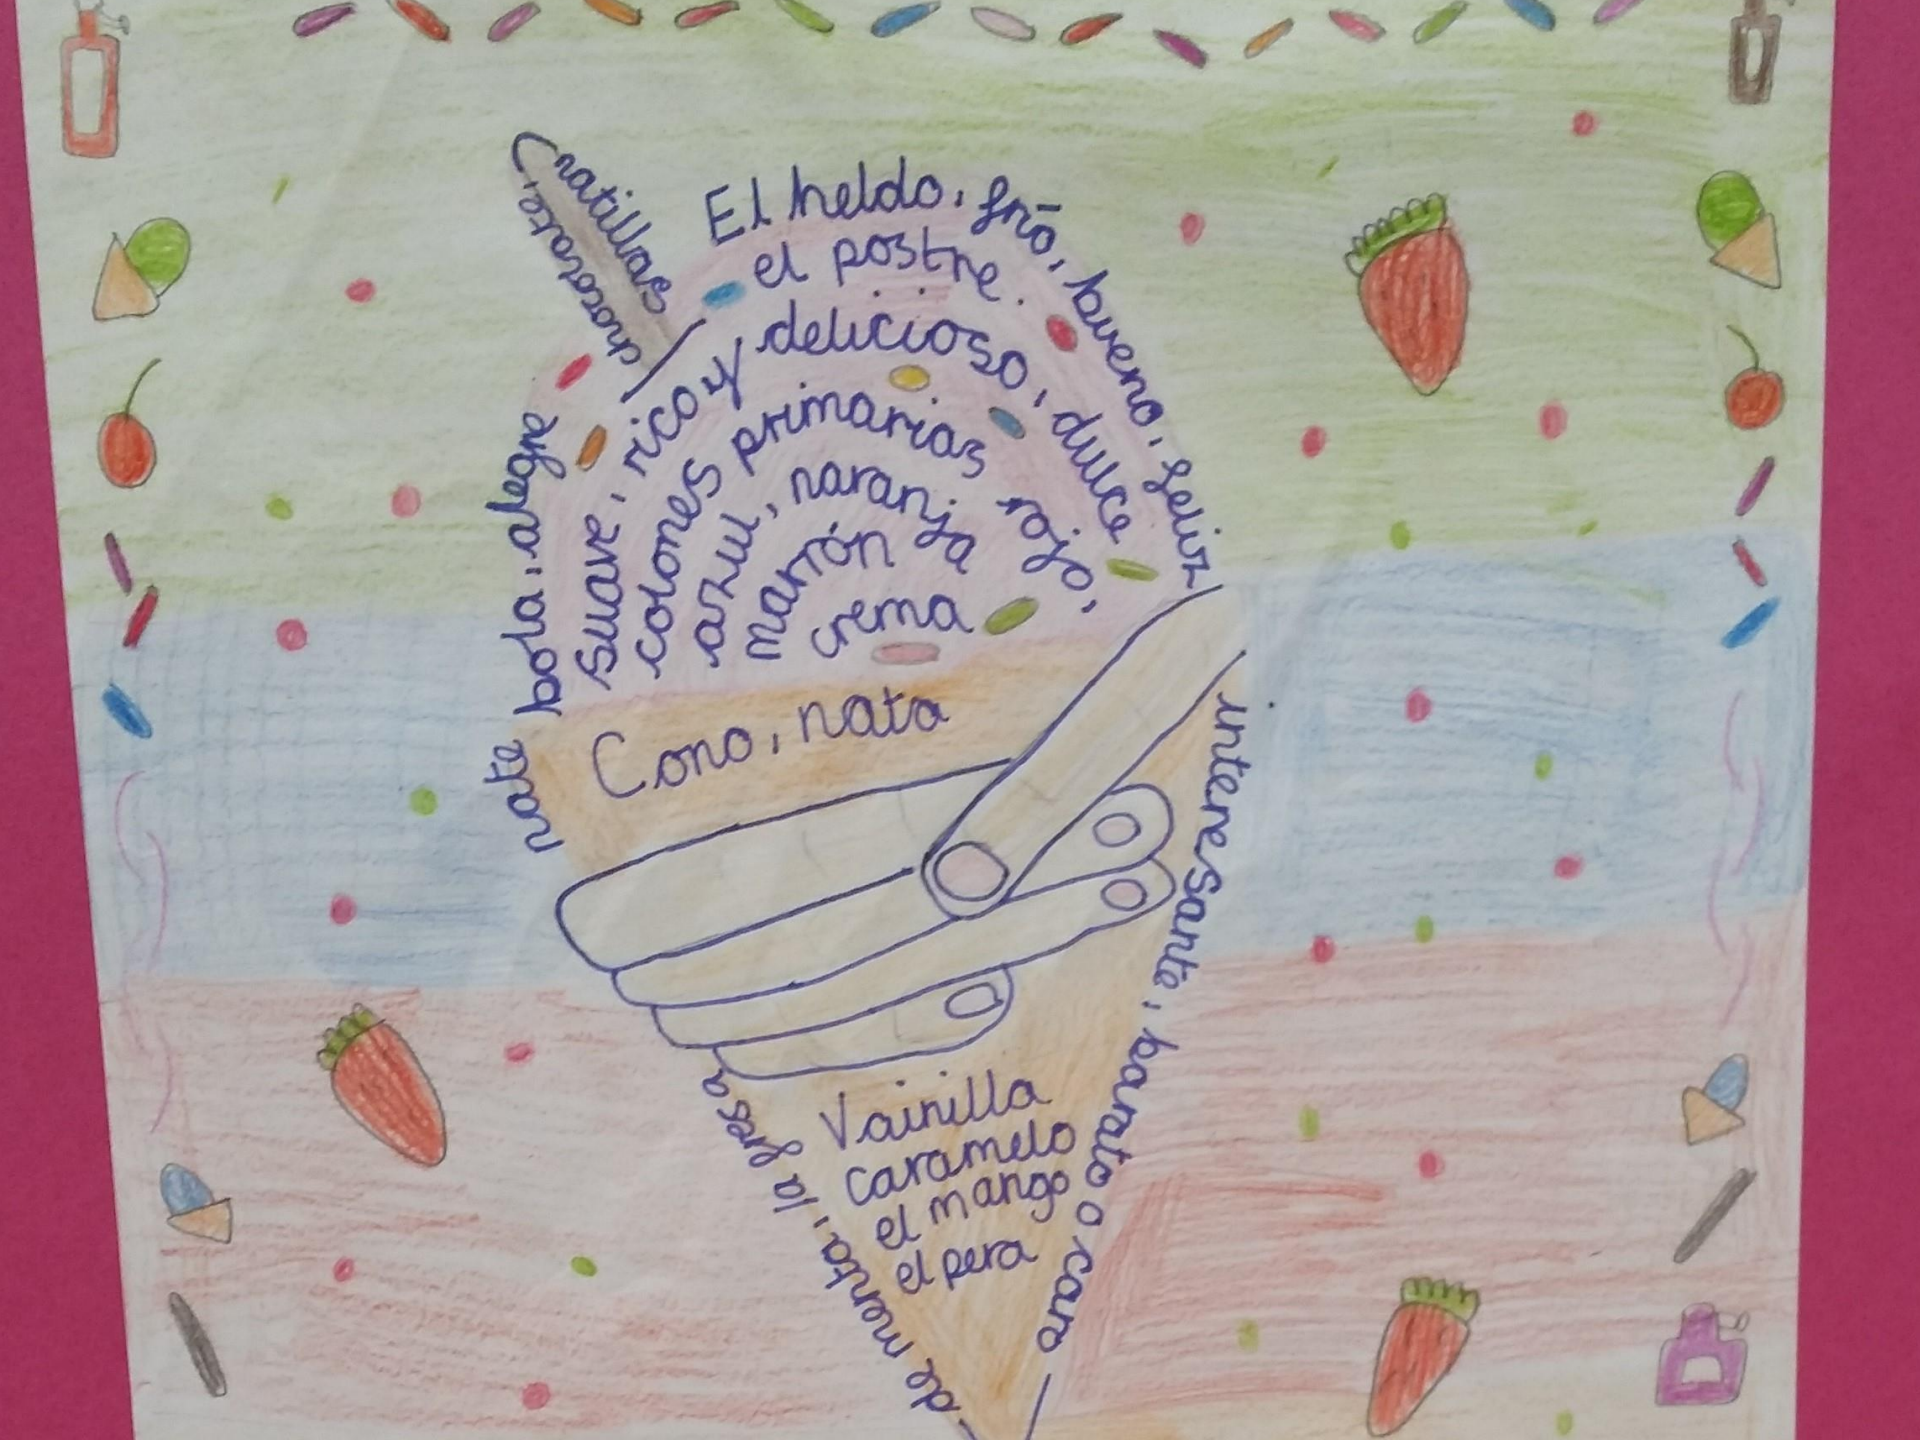 Cratillons
chocolate,
El heldo, frío, bueno, feliz
el postre.
suave, rico y delicioso, dulce
colores primarias rojo,
azul, naranja
marrón
crema
nate bola, alegre
Cono, nata
interesante, barato o caro
Vainilla
caramelo
el mango
el pera
de menta, la fresa